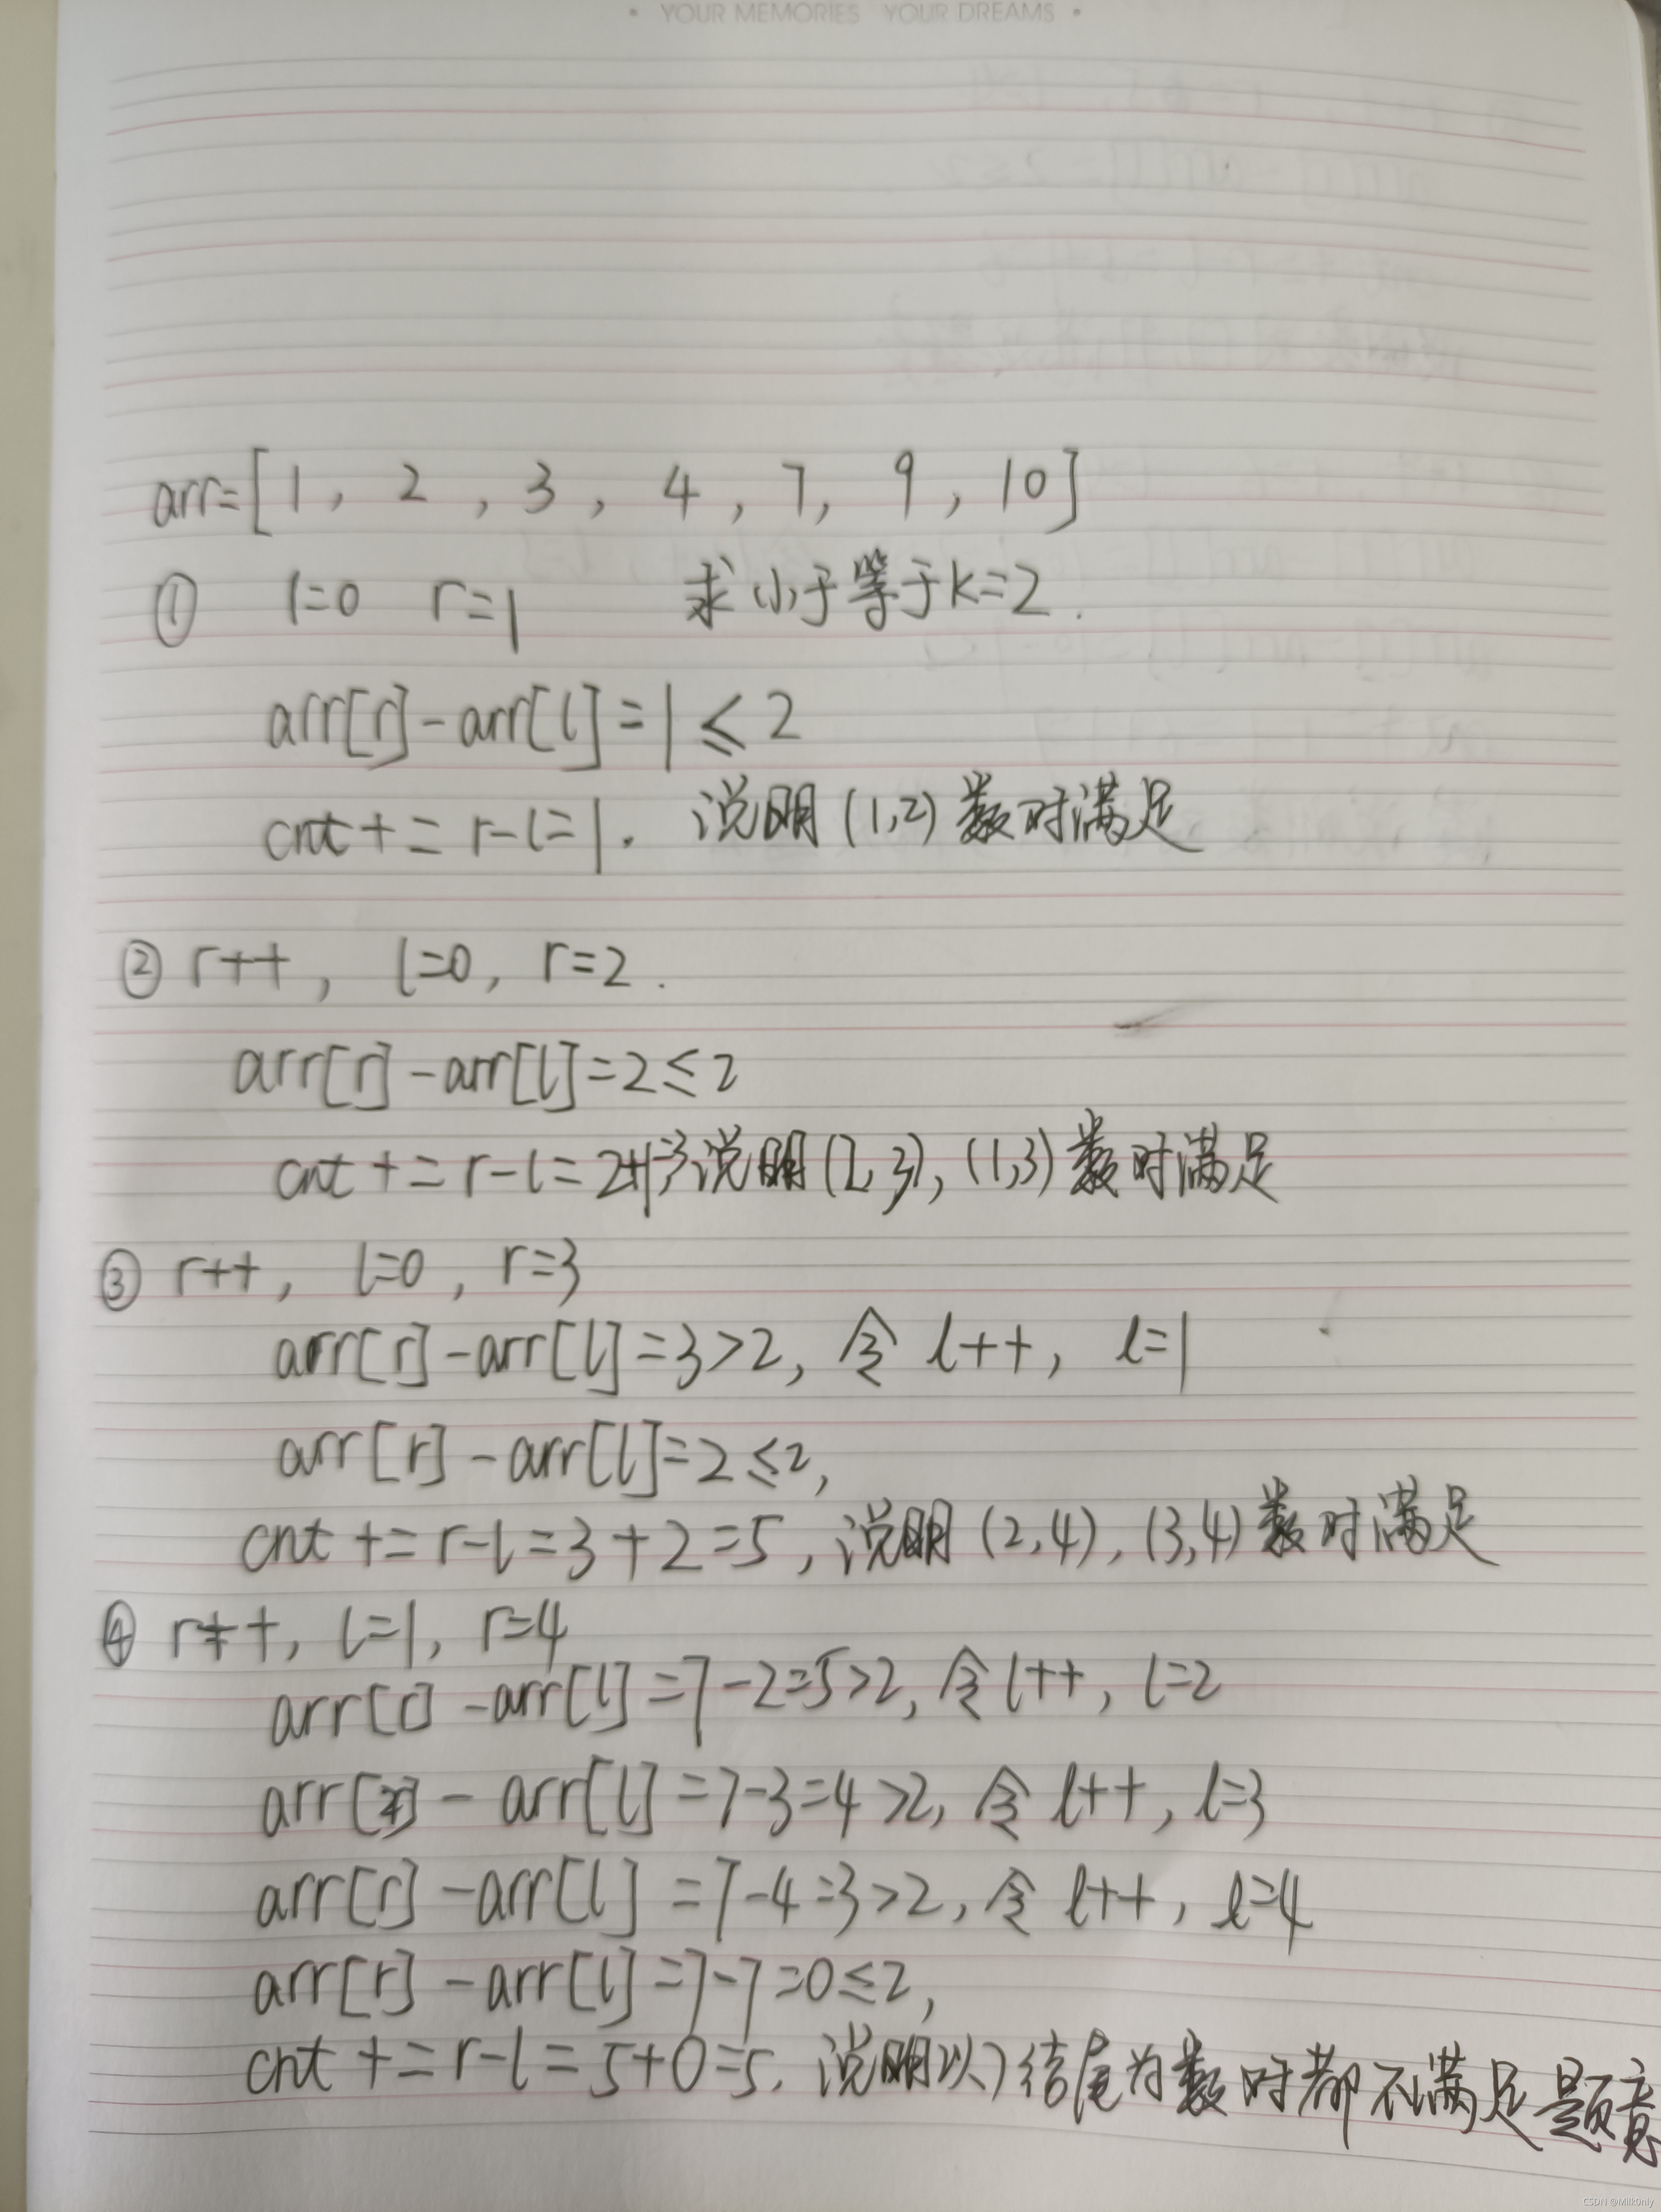 • YOUR MEMORIES YOUR DREAMS •
arr=[1, 2, 3, 4, 7, 9, 10]
① l=0 r=1 求小于等于k=2.
arr[r]-arr[l]=1≤2
cnt+=r-l=1. 说明(1,2)数对满足
② r++, l=0, r=2.
arr[r]-arr[l]=2≤2
cnt+=r-l=2+1=3 说明(2,3),(1,3)数对满足
③ r++, l=0, r=3
arr[r]-arr[l]=3>2, 令l++, l=1
arr[r]-arr[l]=2≤2,
cnt+=r-l=3+2=5, 说明(2,4),(3,4)数对满足
④ r++, l=1, r=4
arr[r]-arr[l]=7-2=5>2, 令l++, l=2
arr[r]-arr[l]=7-3=4>2, 令l++, l=3
arr[r]-arr[l]=7-4=3>2, 令l++, l=4
arr[r]-arr[l]=7-7=0≤2,
cnt+=r-l=5+0=5. 说明以7结尾为数对都不满足题意
CSDN @MilkOnly